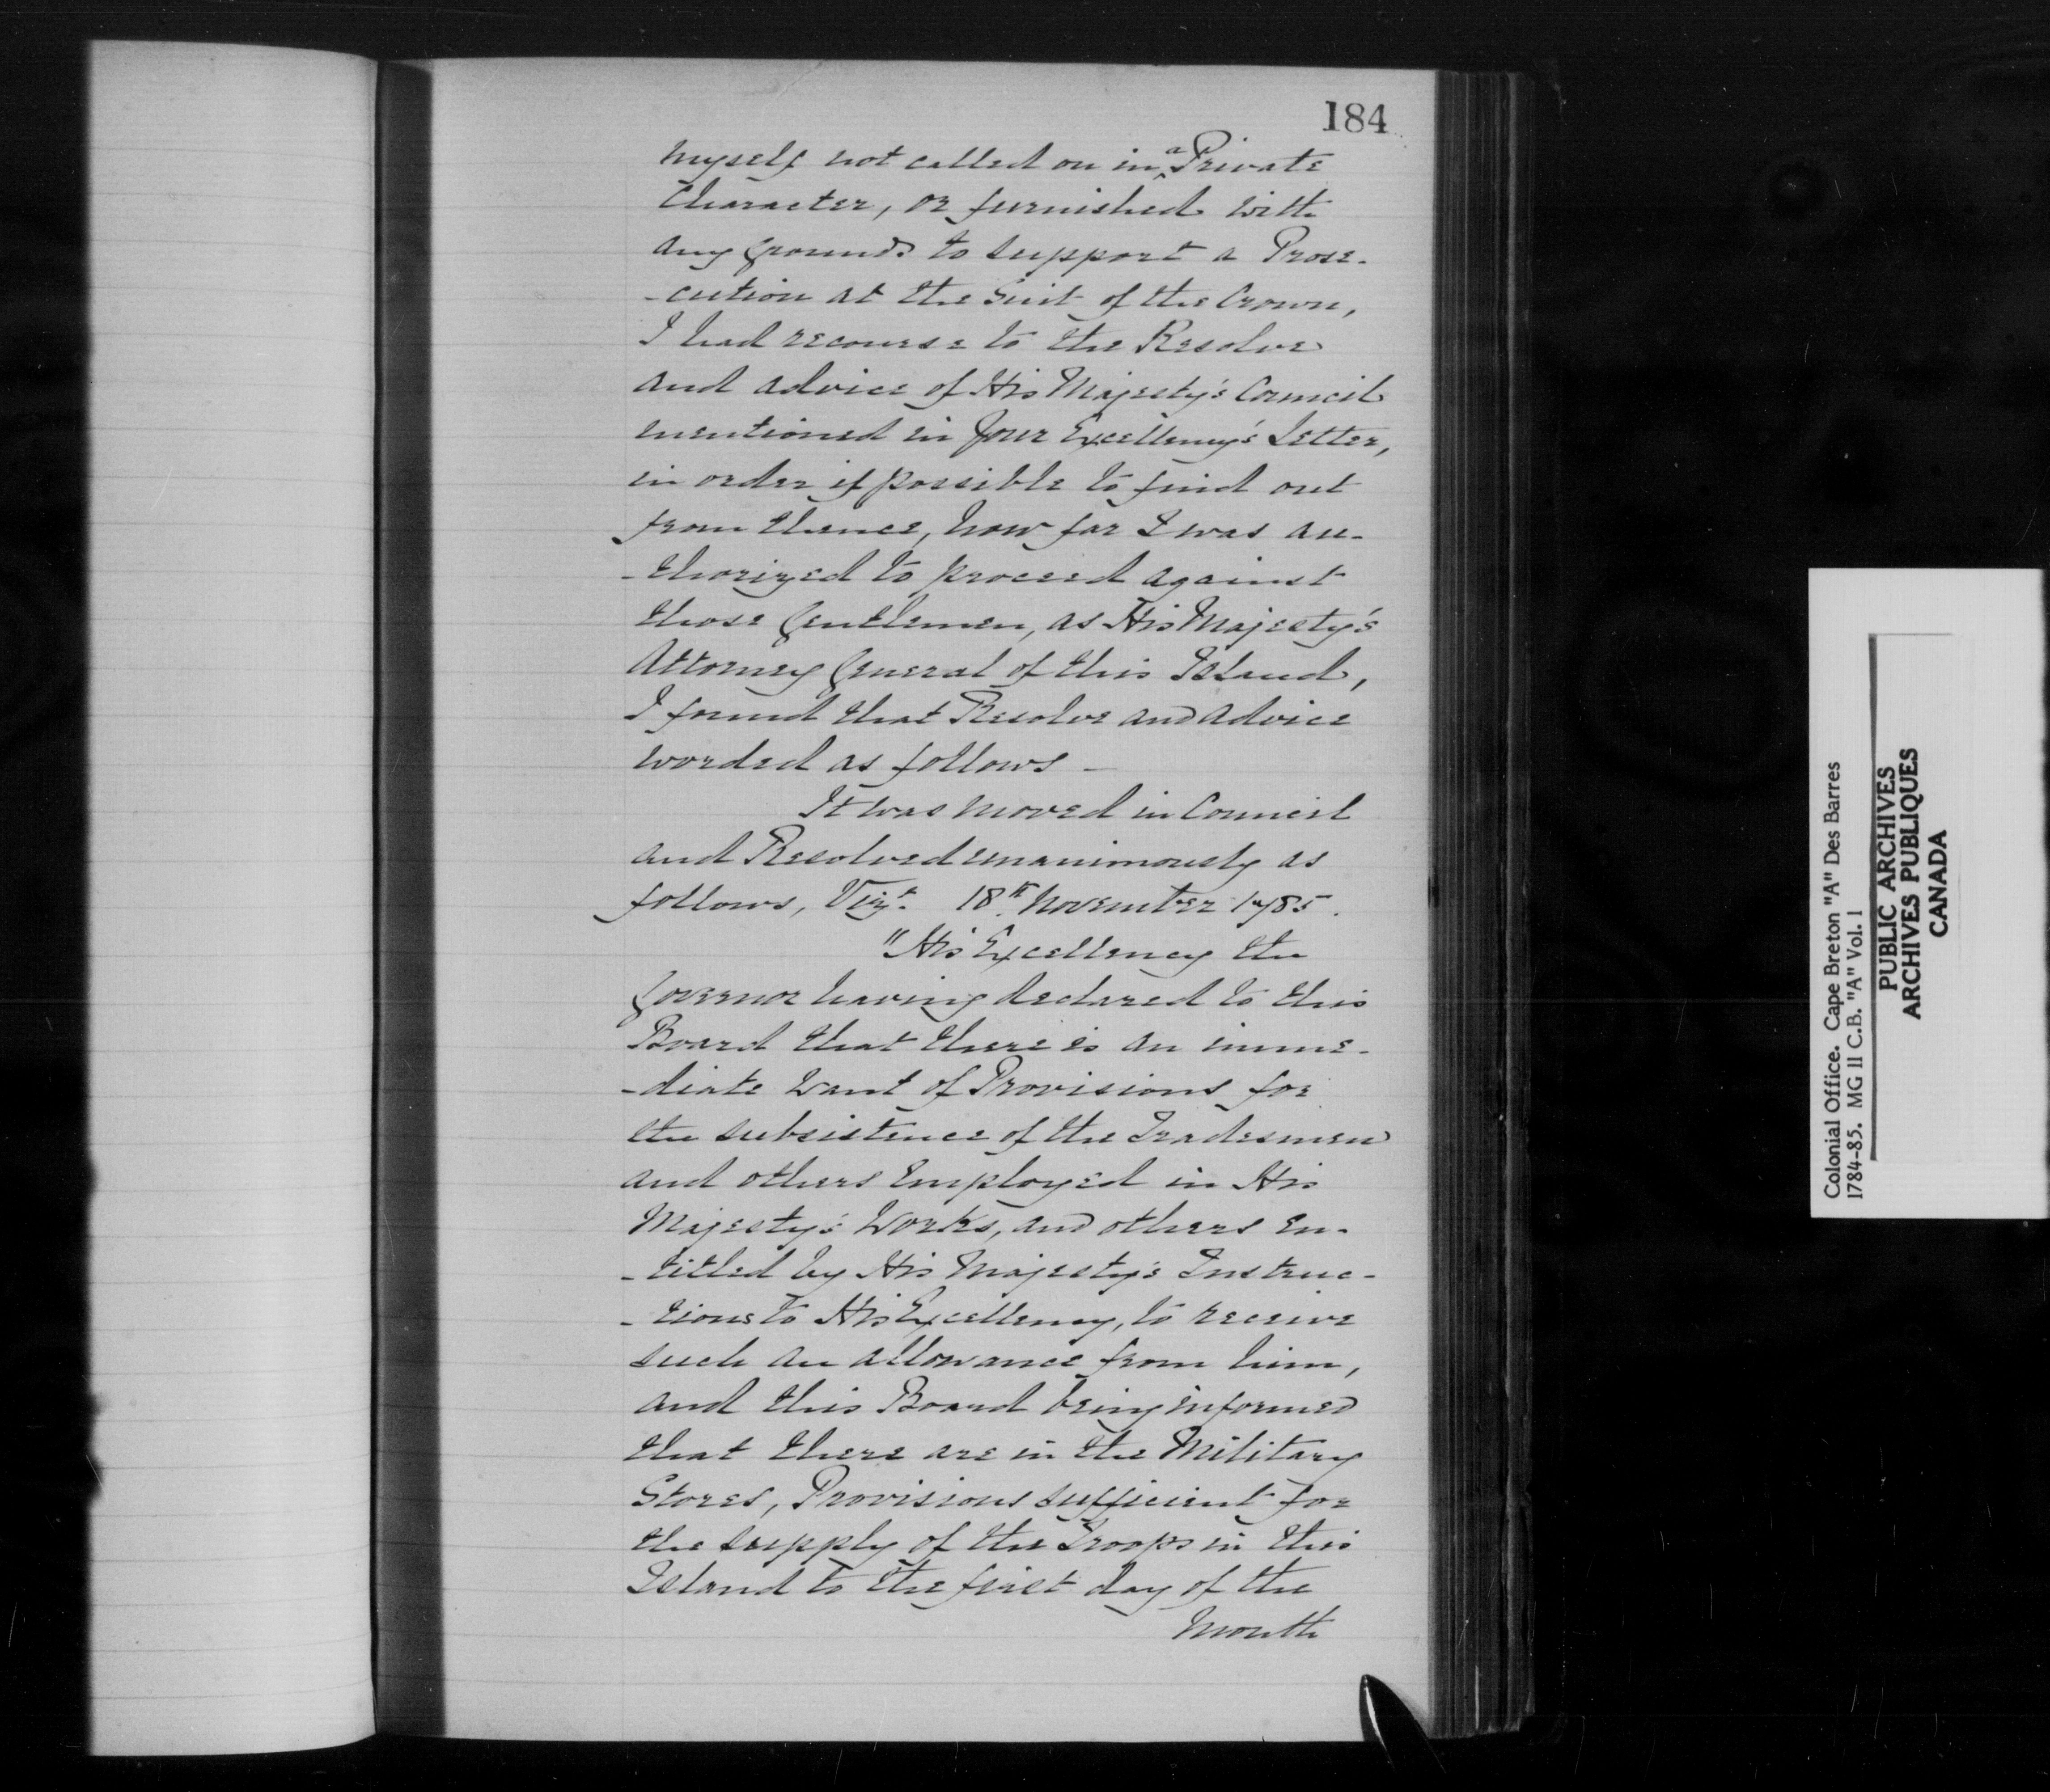 184
myself not called on in a Private
Character, or furnished with
any grounds to support a Prose-
-cution at the Suit of the Crown,
I had recourse to the Resolve
and advice of His Majesty's Council
mentioned in Your Excellency's Letter,
in order if possible to find out
from thence, how far I was au-
-thorized to proceed against
those Gentlemen, as His Majesty's
Attorney General of this Island,
I found that Resolve and advice
worded as follows -
It was moved in Council
and Resolved unanimously as
follows, Vizt. 18th November 1785.
"His Excellency the
Governor having declared to this
Board that there is an imme-
-diate want of Provisions for
the subsistence of the Tradesmen
and others employed in His
Majesty's Works, and others en-
-titled by His Majesty's Instruc-
-tions to His Excellency, to receive
such an allowance from him,
and this Board being informed
that there are in the Military
Stores, Provisions sufficient for
the supply of the Troops in this
Island to the first day of the
month
Colonial Office. Cape Breton "A" Des Barres
1784-85. MG 11 C.B. "A" Vol. 1
PUBLIC ARCHIVES
ARCHIVES PUBLIQUES
CANADA